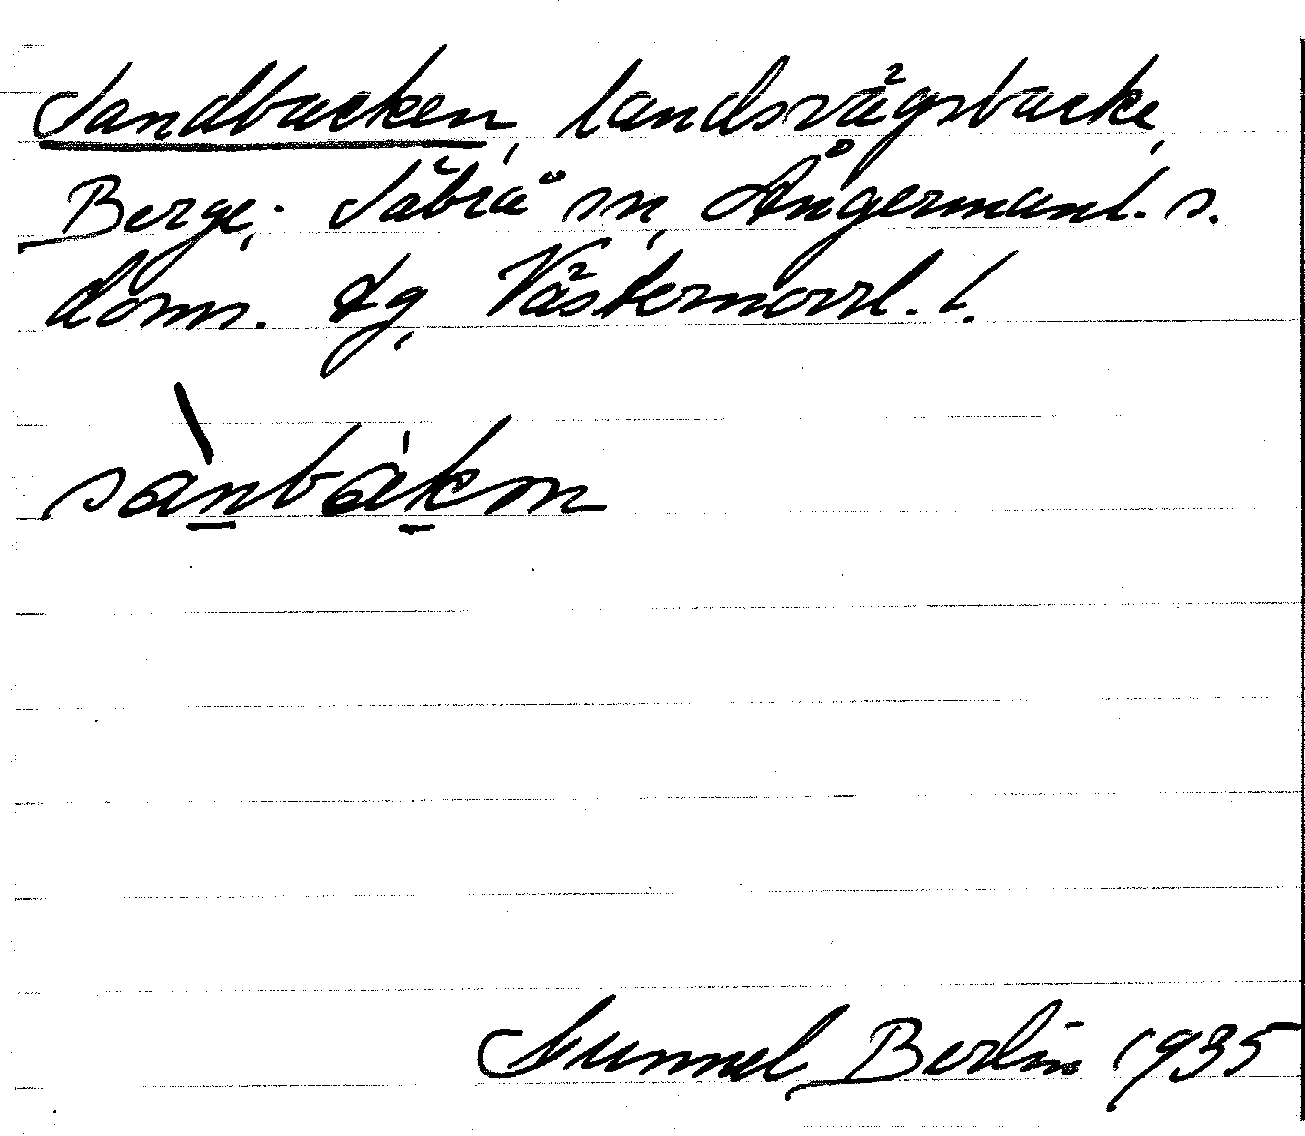 Sandbacken, landsvägsbacke,
Berge, Säbrå sn, Ångermanl. s.
doms. tg, Västernorrl. l.
sànbàkən
Gunnel Berlin 1935